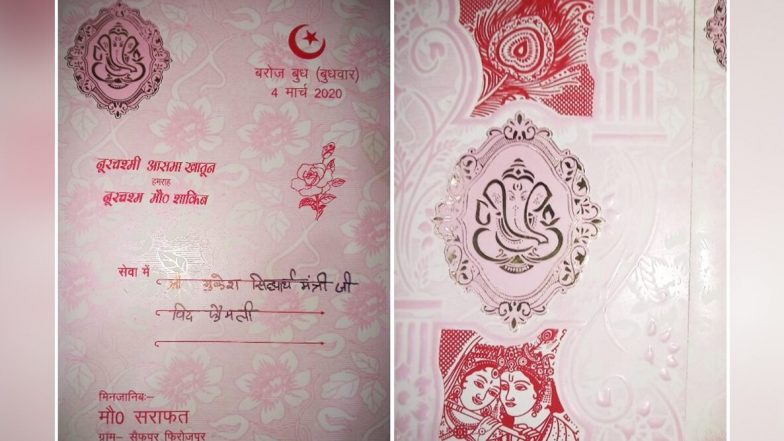 बरोज बुध (बुधवार)
4 मार्च 2020
नूरचश्मी आसमा खातून
हमराह
नूरचश्म मौ0 शाकिब
सेवा में
श्री मुकेश सिद्धार्थ मंत्री जी
विद फैमली
मिनजानिबः-
मौ0 सराफत
ग्राम- सैफपुर फिरोजपुर